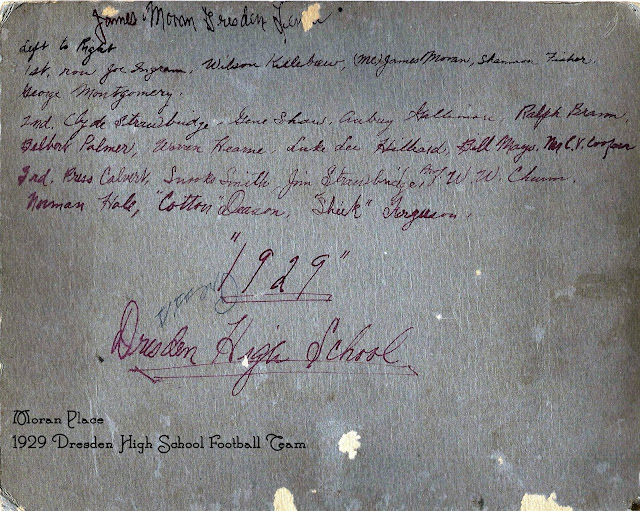 James Moran Dresden
Left to Right
1st, row Joe Ingram, Wilson Killebrew, (me) James Moran, Shannon Fisher.
George Montgomery.
2nd. Clyde Strawbridge, Gene Shaw, Aubry Gallimore, Ralph Brann,
Delbert Palmer, Warren Reame, Luke Lee Hilliard, Bill Mayo, Mr C.V. Cooper
3rd. Bress Calvert, Snooks Smith, Jim Strawbridge, W. W. Chunn,
Norman Hale, "Cotton" Deason, "Sheik" Ferguson.
"1929"
Dresden High School
Moran Place
1929 Dresden High School Football Team